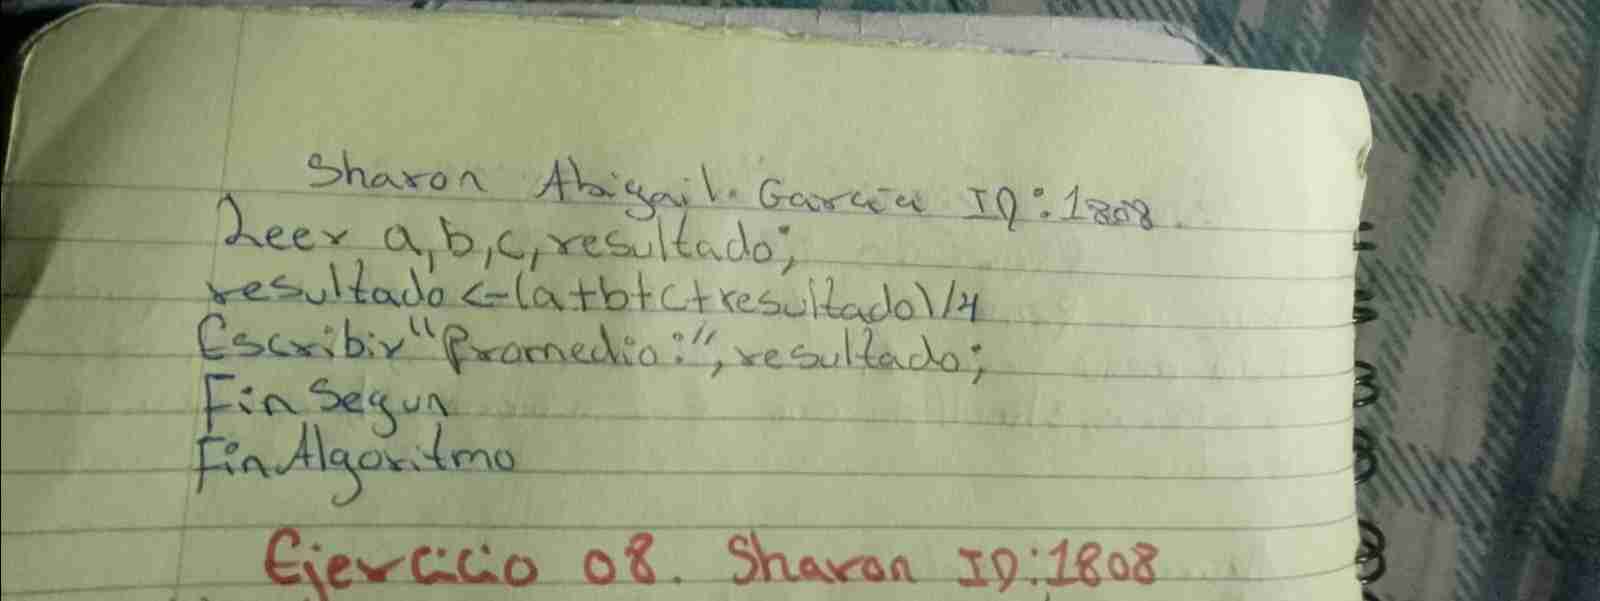 Sharon Abigail. García ID:1808
Leer a,b,c,resultado;
resultado <-(a+b+c+resultado)/4
Escribir "Promedio:", resultado;
Fin Segun
FinAlgoritmo
Ejercicio 08. Sharon ID:1808